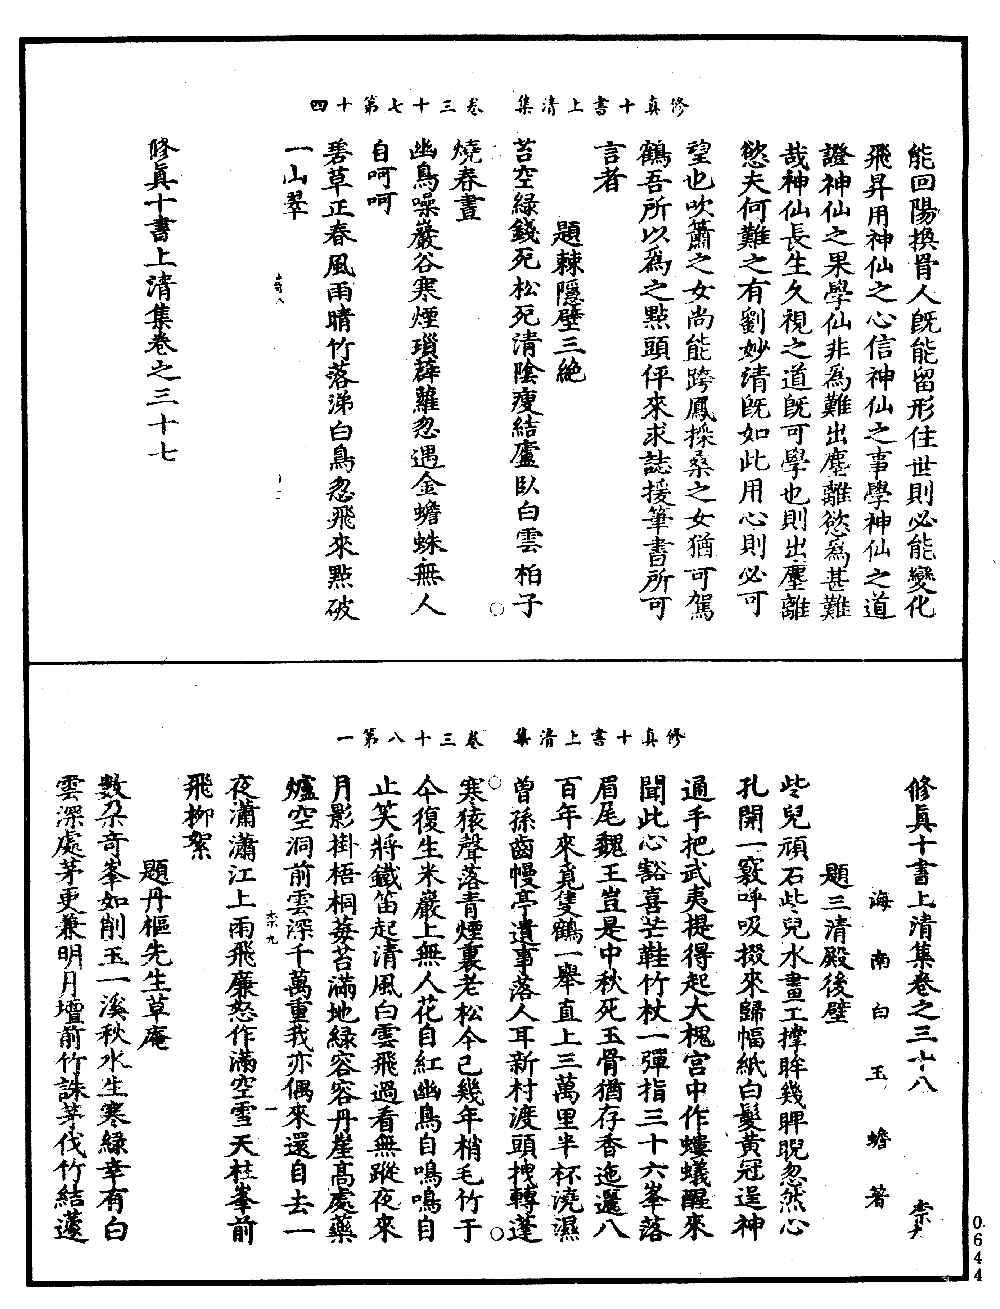 修真十書上清集　卷三十七第十四
能回陽換骨人旣能留形住世則必能變化
飛昇用神仙之心信神仙之事學神仙之道
證神仙之果學仙非爲難出塵離慾爲甚難
哉神仙長生久視之道旣可學也則出塵離
慾夫何難之有劉妙清旣如此用心則必可
望也吹簫之女尚能跨鳳採桑之女猶可駕
鶴吾所以爲之點頭伻來求誌援筆書所可
言者
題棘隱壁三絶
苔空綠錢死松死清陰瘦結廬臥白雲柏子
燒春晝
幽鳥噪巖谷寒煙瑣薜蘿忽遇金蟾蛛無人
自呵呵
碧草正春風雨晴竹落涕白鳥忽飛來點破
一山翠
修真十書上清集卷之三十七
修真十書上清集　卷三十八第一
修真十書上清集卷之三十八
海南白玉蟾著
題三清殿後壁
些兒頑石些兒水畫工撑眸幾睥睨忽然心
孔開一竅呼吸掇來歸幅紙白髮黃冠逞神
通手把武夷提得起大槐宮中作螻蟻醒來
聞此心豁喜芒鞋竹杖一彈指三十六峯落
眉尾魏王豈是中秋死玉骨猶存香迤邐八
百年來覓隻鶴一舉直上三萬里半杯澆濕
曾孫齒幔亭遺事落人耳新村渡頭拽轉蓬
寒猿聲落青煙裏老松今已幾年梢毛竹于
今復生米巖上無人花自紅幽鳥自鳴鳴自
止笑將鐵笛起清風白雲飛過看無蹤夜來
月影掛梧桐莓苔滿地綠容容丹崖高處藥
爐空洞前雲深千萬重我亦偶來還自去一
夜瀟瀟江上雨飛廉怒作滿空雪天柱峯前
飛柳絮
題丹樞先生草庵
數朶奇峯如削玉一溪秋水生寒綠幸有白
雲深處茅更兼明月壇前竹誅茅伐竹結蘧
0644